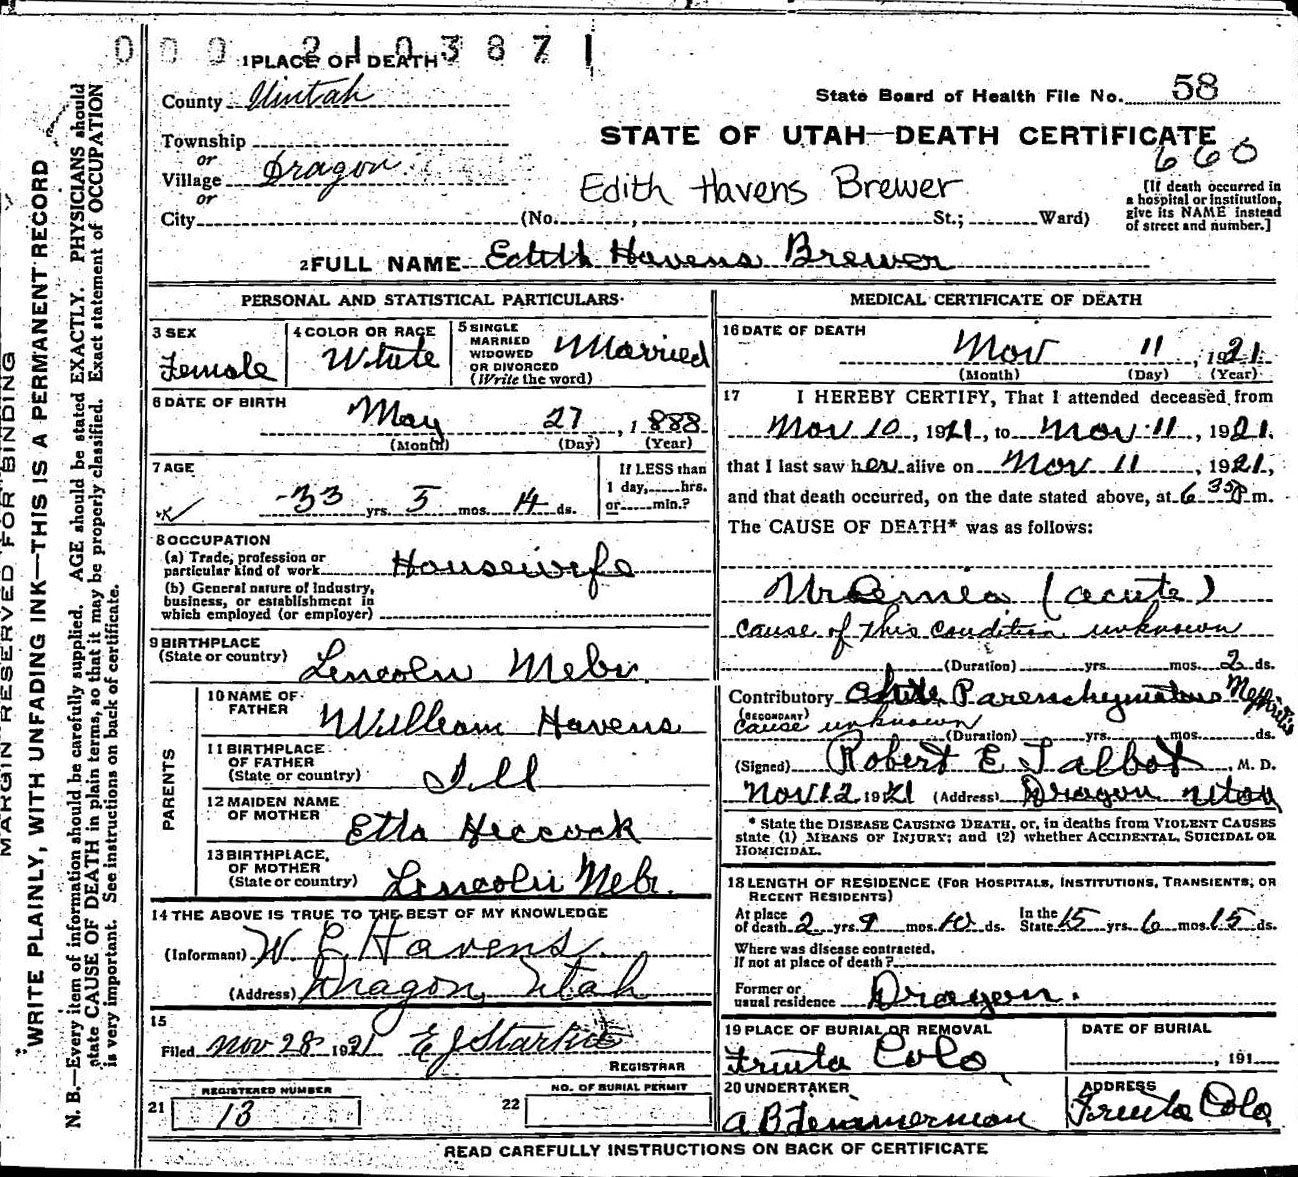 000 2103871
1 PLACE OF DEATH
County Uintah
State Board of Health File No. 58
Township
or
Village Dragon
or
City
STATE OF UTAH—DEATH CERTIFICATE
660
Edith Havens Brewer
(No. , St.; Ward)
[If death occurred in
a hospital or institution,
give its NAME instead
of street and number.]
2 FULL NAME Edith Havens Brewer
PERSONAL AND STATISTICAL PARTICULARS
3 SEX
Female
4 COLOR OR RACE
White
5 SINGLE
MARRIED
WIDOWED
OR DIVORCED
(Write the word)
Married
6 DATE OF BIRTH
May 27, 1888
(Month) (Day) (Year)
7 AGE
33 yrs. 5 mos. 14 ds.
If LESS than
1 day, hrs.
or min.?
8 OCCUPATION
(a) Trade, profession or
particular kind of work Housewife
(b) General nature of industry,
business, or establishment in
which employed (or employer)
9 BIRTHPLACE
(State or country) Lincoln Nebr.
PARENTS
10 NAME OF
FATHER William Havens
11 BIRTHPLACE
OF FATHER
(State or country) Ill
12 MAIDEN NAME
OF MOTHER Etta Heccock
13 BIRTHPLACE,
OF MOTHER
(State or country) Lincoln Nebr.
14 THE ABOVE IS TRUE TO THE BEST OF MY KNOWLEDGE
(Informant) W E Havens
(Address) Dragon, Utah
15
Filed Nov 28 1921 E J Starkie
REGISTRAR
REGISTERED NUMBER
21 13
NO. OF BURIAL PERMIT
22
MEDICAL CERTIFICATE OF DEATH
16 DATE OF DEATH
Nov 11, 1921
(Month) (Day) (Year)
17 I HEREBY CERTIFY, That I attended deceased from
Nov 10, 1921, to Nov 11, 1921.
that I last saw her alive on Nov 11, 1921,
and that death occurred, on the date stated above, at 6 35 P m.
The CAUSE OF DEATH* was as follows:
Uremia (acute)
cause of this condition unknown
(Duration) yrs. mos. 2 ds.
Contributory Acute Parenchymatous Nephritis
(SECONDARY)
cause unknown
(Duration) yrs. mos. ds.
(Signed) Robert E Talbot, M. D.
Nov 12 1921 (Address) Dragon Utah
* State the DISEASE CAUSING DEATH, or, in deaths from VIOLENT CAUSES
state (1) MEANS OF INJURY; and (2) whether ACCIDENTAL, SUICIDAL OR
HOMICIDAL.
18 LENGTH OF RESIDENCE (FOR HOSPITALS, INSTITUTIONS, TRANSIENTS, OR
RECENT RESIDENTS)
At place
of death 2 yrs. 9 mos. 10 ds. In the
State 15 yrs. 6 mos. 15 ds.
Where was disease contracted,
If not at place of death?
Former or
usual residence Dragon.
19 PLACE OF BURIAL OR REMOVAL
Fruita Colo
DATE OF BURIAL
, 191
20 UNDERTAKER
ADDRESS
Fruita Colo
READ CAREFULLY INSTRUCTIONS ON BACK OF CERTIFICATE
MARGIN RESERVED FOR BINDING
"WRITE PLAINLY, WITH UNFADING INK—THIS IS A PERMANENT RECORD
N. B.—Every item of information should be carefully supplied. AGE should be stated EXACTLY. PHYSICIANS should
state CAUSE OF DEATH in plain terms, so that it may be properly classified. Exact statement of OCCUPATION
is very important. See instructions on back of certificate.